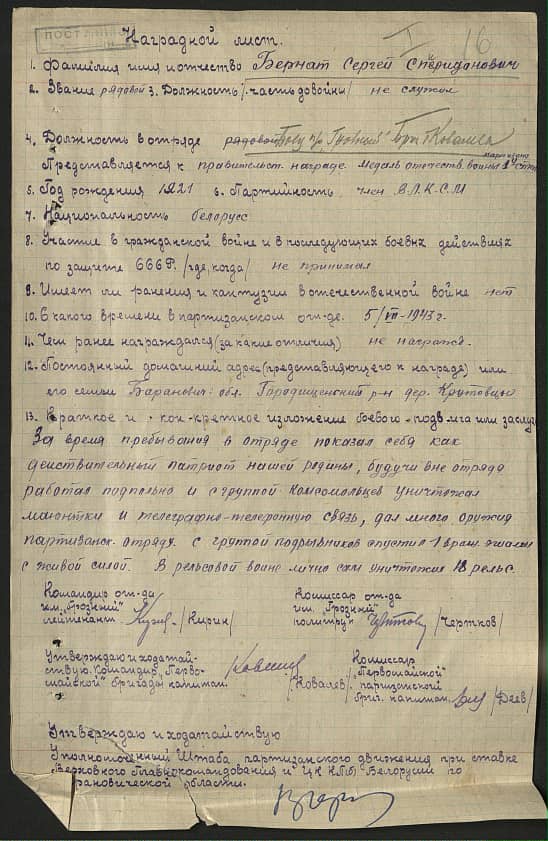 Наградной лист.
I 16
1. Фамилия имя и отчество Бернат Сергей Спиридонович
2. Звание рядовой 3. Должность /часть до войны/ не служил
4. Должность в отряде рядовой п/о Грозный" бр. Ковалева
партизану
Представляется к правительст. награде медаль отечеств. войны 1й степ
5. Год рождения 1921 6. Партийность член В.Л.К.С.М
7. Национальность белорус
8. Участие в гражданской войне и в последующих боевых действиях
по защите СССР. /где, когда/ не принимал
9. Имеет ли ранения и контузии в отечественной войне нет
10. С какого времени в партизанском от-де. 5/VII-1943г.
11. Чем ранее награждался (за какие отличия) не награжд.
12. Постоянный домашний адрес (представляющего к награде) или
его семьи Баранович. обл. Городищенский р-н дер.
13. Краткое и кон-кретное изложение боевого-подвига или заслуг
За время пребывания в отряде показал себя как
действительный патриот нашей родины, будучи вне отряда
работал подпольно и с группой комсомольцев уничтожал
маюнтки и телеграфно-телефонную связь, дал много оружия
партизанск. отряду. с группой подрывников спустил 1 враж. эшалон
с живой силой. В рельсовой войне лично сам уничтожил рельс.
Командир от-да
им. "Грозный"
лейтенант /Кирин/
Комиссар от-да
им. "Грозный"
политрук /Чертков/
Утверждаю и ходатай-
ствую. Командир "Перво-
майской" бригады капитан. /Ковалев/
Комиссар
"Первомайской"
партизанской
бриг. капитан. /Деев/
Утверждаю и ходатайствую
Уполномоченный Штаба партизанского движения при ставке
Верховного Главнокомандования и ЦК КП/б/ Белорусии по
рановической области.